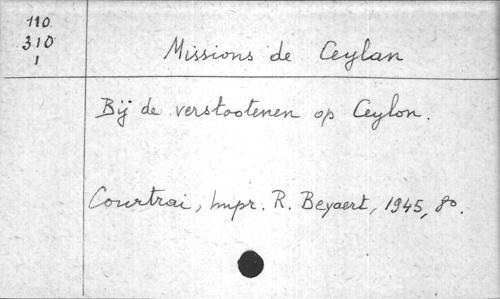 110
310
1
Missions de Ceylan
Bij de verstootenen op Ceylon.
Courtrai, Impr. R. Beyaert, 1945, 8o.